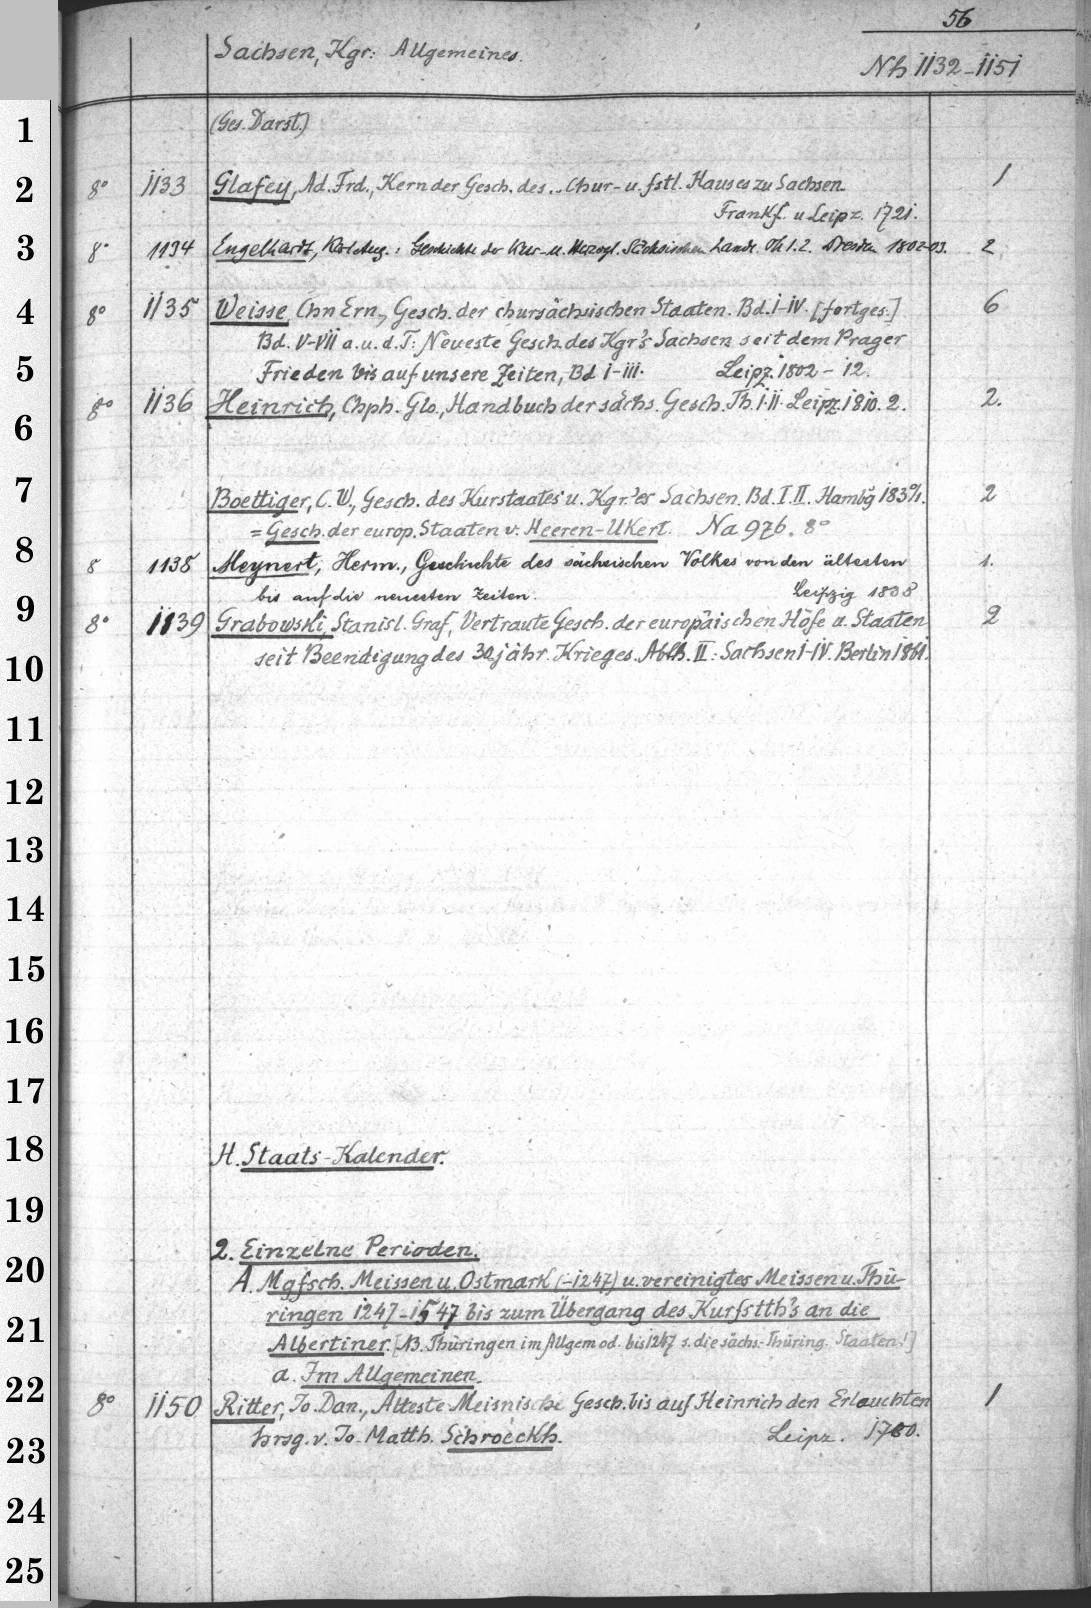 56
Sachsen, Kgr: Allgemeines.
Nh 1132-1151
1
(Ges. Darst.)
2 8° 1133 Glafey, Ad. Frd., Kern der Gesch. des .. Chur- u. fstl. Hauses zu Sachsen 1
Frankf. u Leipz. 1721.
3 8° 1134 Engelhardt, Karl Aug.: Geschichte der Kur- u. Herzogl. Sächsischen Lande. Th 1.2. Dresden 1802-03. 2
4 8° 1135 Weisse, Chn Ern., Gesch. der chursächsischen Staaten. Bd. I-IV. [fortges.] 6
Bd. V-VII a. u. d. T: Neueste Gesch. des Kgr's Sachsen seit dem Prager
5 Frieden bis auf unsere Zeiten, Bd I-III. Leipz. 1802-12.
8° 1136 Heinrich, Chph. Glo., Handbuch der sächs. Gesch. Th. I.II. Leipz. 1810. 2. 2.
6
7 Boettiger, C. W., Gesch. des Kurstaates u. Kgr.'es Sachsen. Bd. I. II. Hambg 1830/1. 2
= Gesch. der europ. Staaten v. Heeren-Ukert. Na 976. 8°
8 8 1138 Meynert, Herm., Geschichte des sächsischen Volkes von den ältesten 1.
9 bis auf die neuesten Zeiten. Leipzig 1838
8° 1139 Grabowski, Stanisl. Graf, Vertraute Gesch. der europäischen Höfe u. Staaten 2
10 seit Beendigung des 30jähr. Krieges. Abth. II: Sachsen I-IV. Berlin 1861.
11
12
13
14
15
16
17
18 H. Staats-Kalender.
19
2. Einzelne Perioden.
20 A. Mgfsch. Meissen u. Ostmark (-1247) u. vereinigtes Meissen u. Thü-
ringen 1247-1547 bis zum Übergang des Kurfstth's an die
21 Albertiner. [NB. Thüringen im Allgem od. bis 1247 s. die sächs.-Thüring. Staaten!]
a. Im Allgemeinen.
22 8° 1150 Ritter, Jo. Dan., Älteste Meisnische Gesch. bis auf Heinrich den Erlauchten 1
23 hrsg. v. Jo. Matth. Schroeckh. Leipz. 1780.
24
25